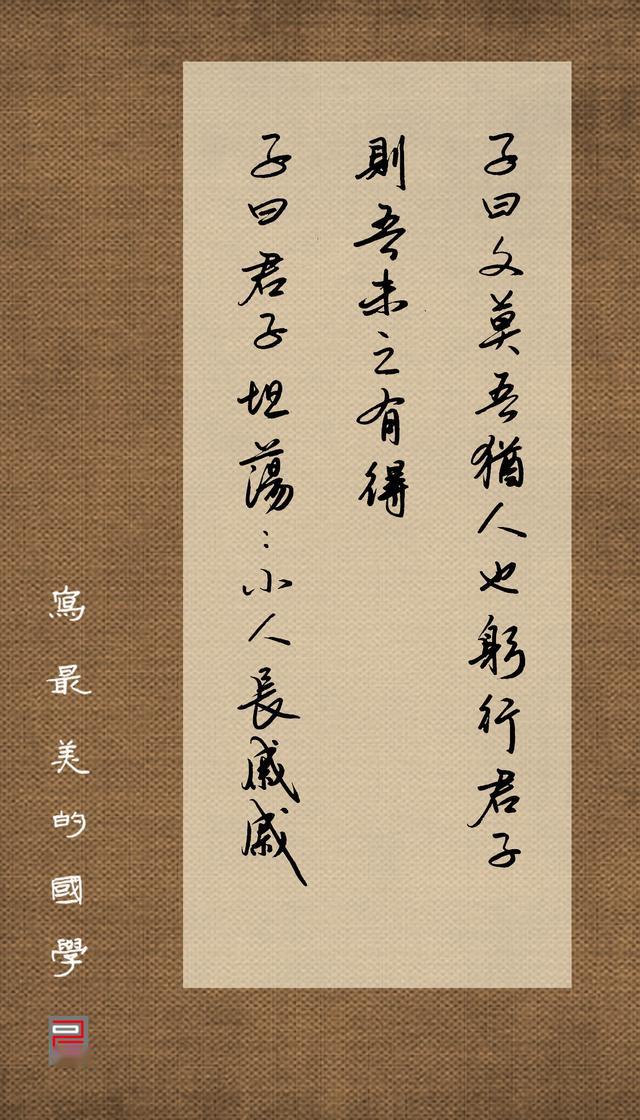 子曰文莫吾猶人也躬行君子
則吾未之有得
子曰君子坦蕩︰小人長戚戚
寫最美的國學